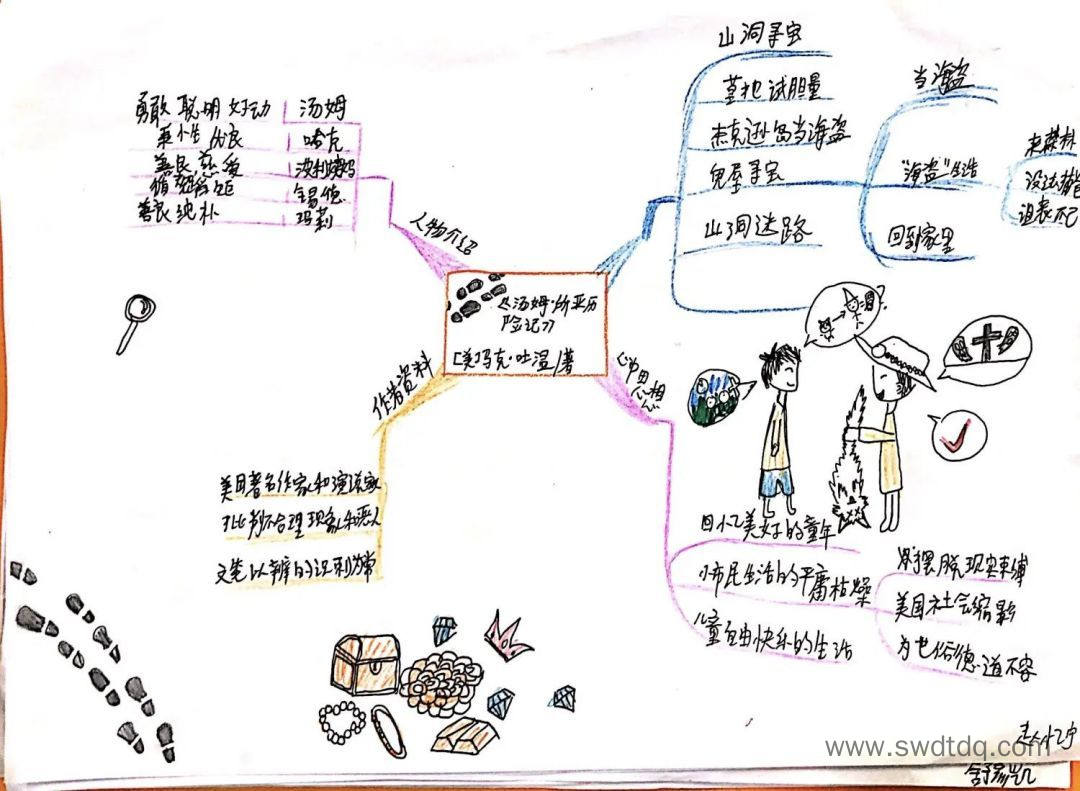 《汤姆·所亚历
险记》
[美]马克·吐温/著
人物介绍
勇敢 聪明 好动 汤姆
哈克
善良 慈爱 波利姨妈
锡德
善良 纯朴 玛莉
作者资料
美国著名作家和演说家
批判不合理现象和恶人
文笔以
山洞寻宝
墓地试胆量
杰克逊岛当海盗
鬼屋寻宝
山洞迷路
当海盗
"海盗"生活
回到家里
中心思想
回忆美好的童年
小市民生活的平庸枯燥
儿童自由快乐的生活
摆脱现实束缚
美国社会缩影
为世俗 道不容
www.swdtdq.com